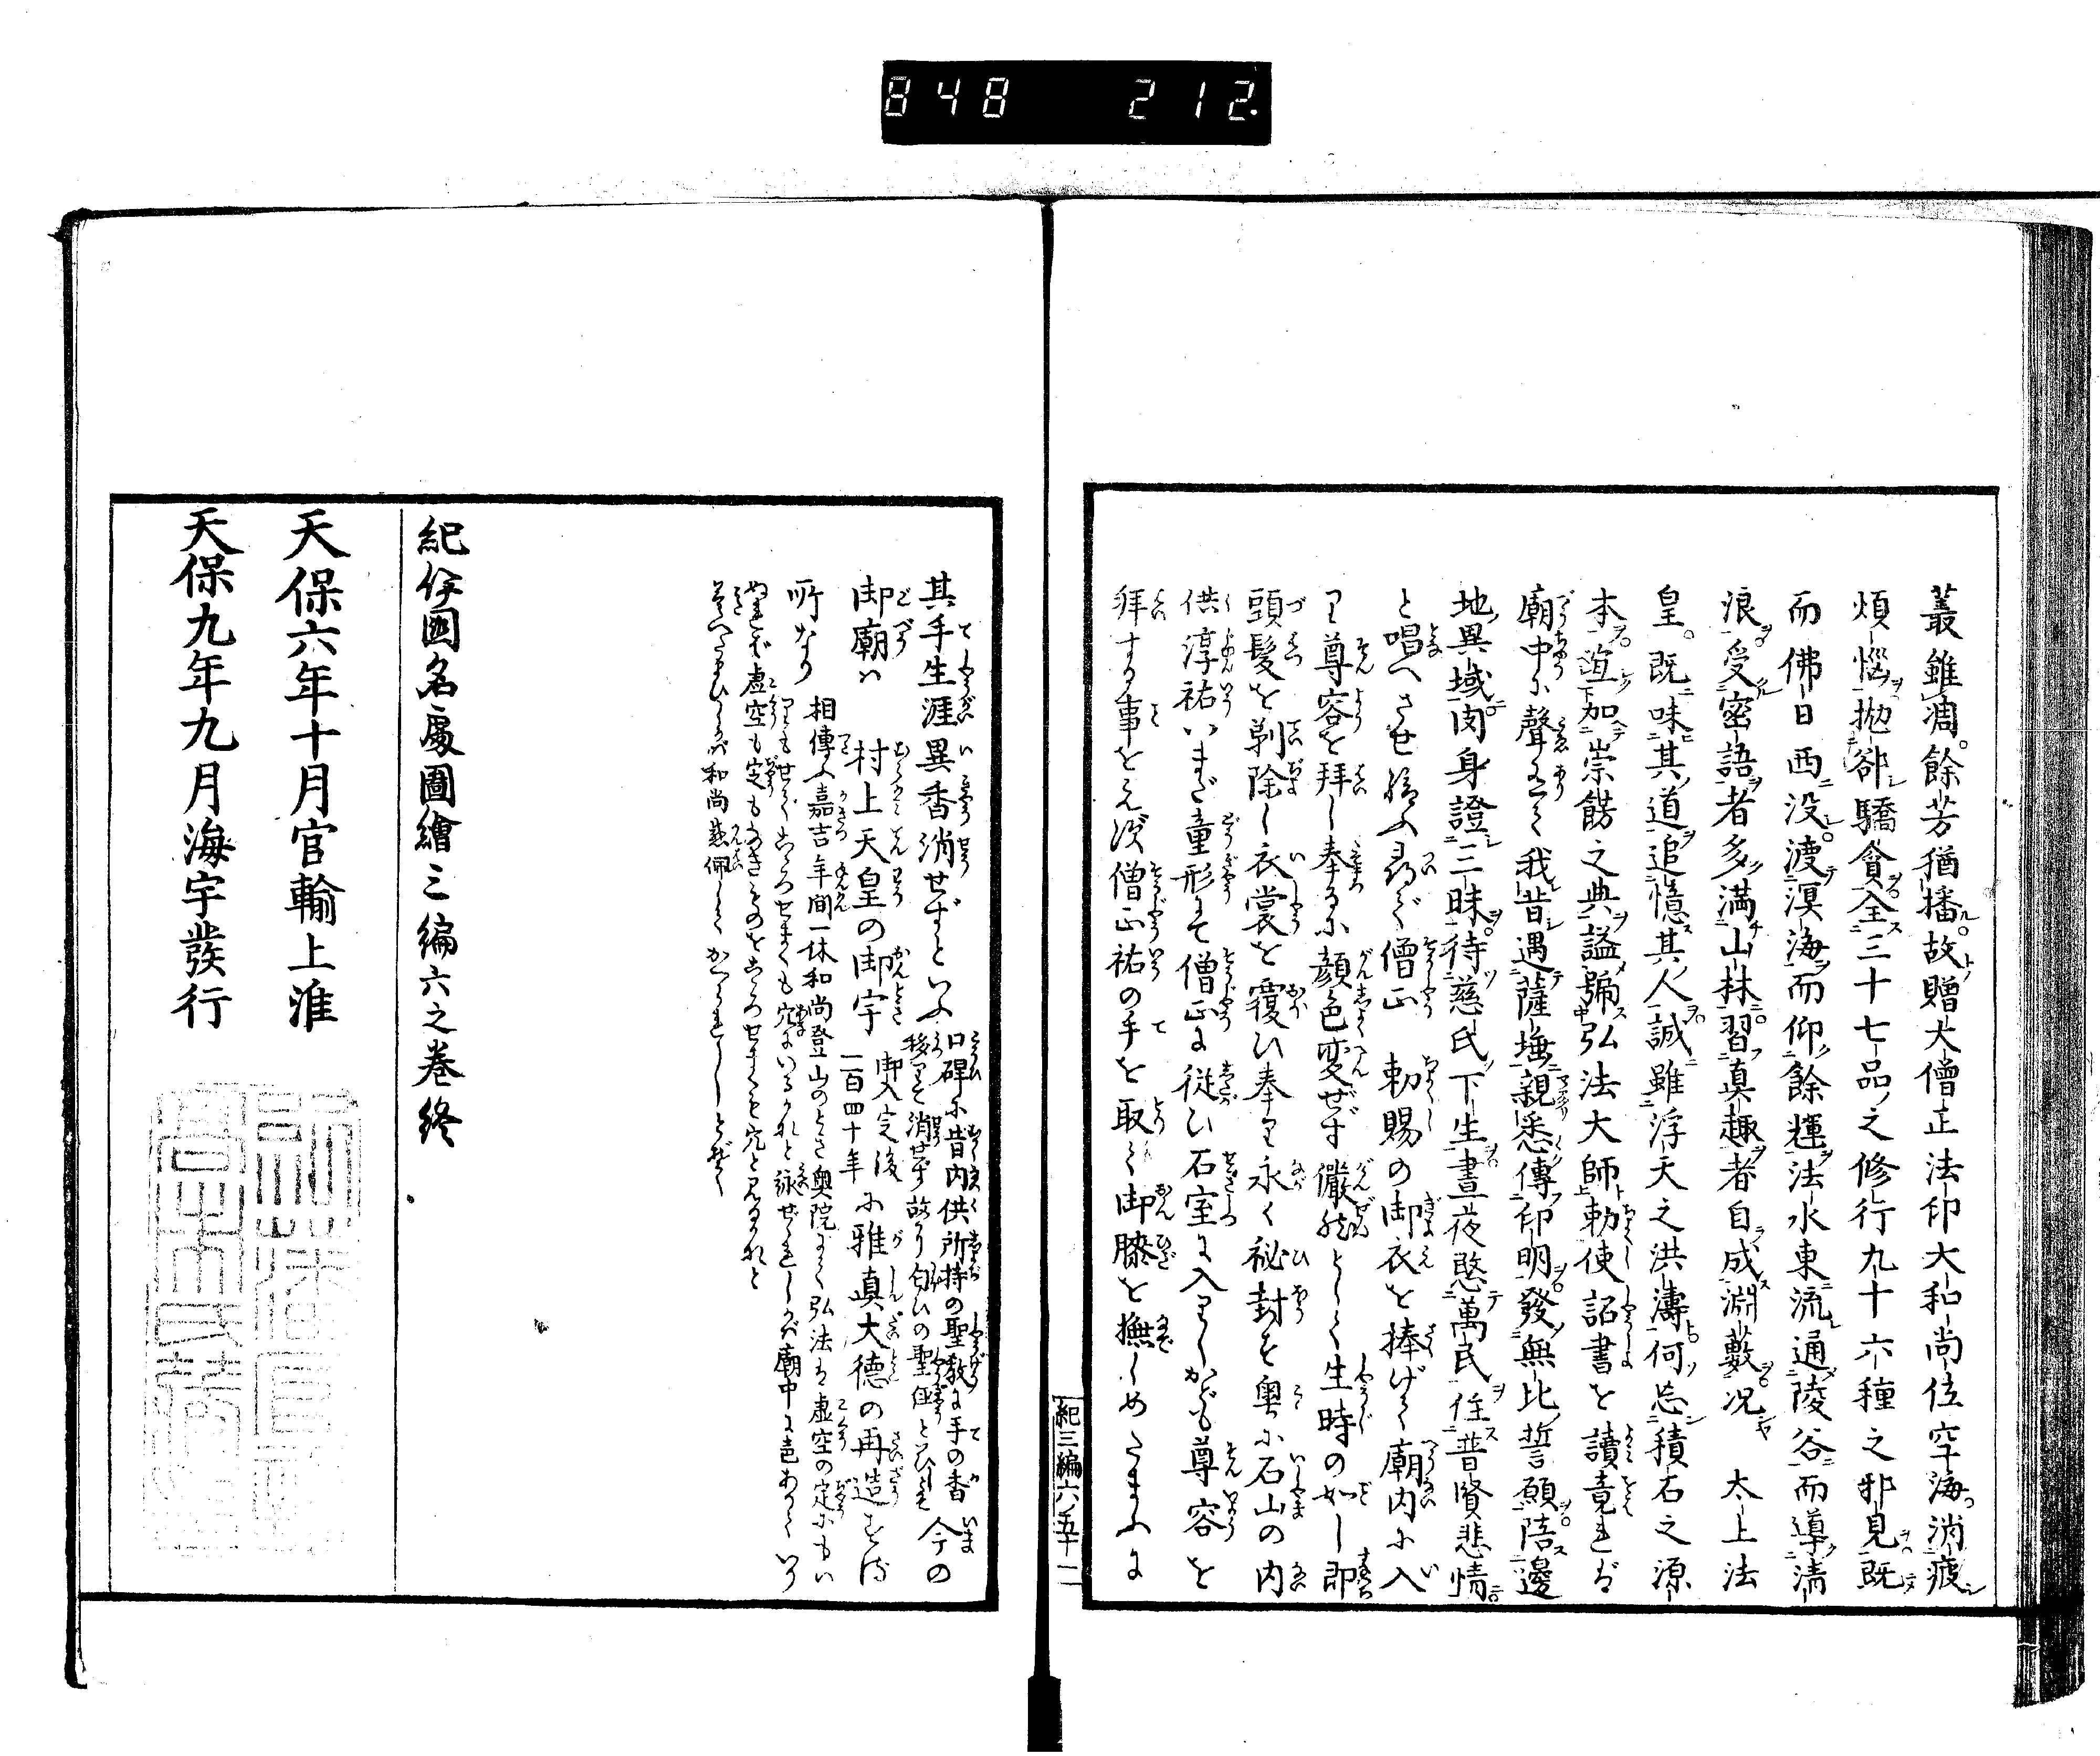 848 212.
叢雖凋餘芳猶播故贈大僧正法印大和尚位空海消疲
煩惱抛卻驕貪全三十七品之修行九十六種之邪見既
而佛日西没渡溟海而仰餘輝法水東流通陵谷而導清
浪受密語者多滿山林習真趣者自成淵藪况太上法
皇既味其道追憶其人誠雖浮天之洪濤何忘積石之源
本宜加崇餝之典謚號弘法大師勅使詔書を讀竟れば
廟中に聲ありて我昔遇薩埵親悉傳印明發無比誓願陪邊
地異域肉身證三昧待慈氏下生晝夜愍萬民住普賢悲情
と唱へさせ給ふ尋で僧正勅賜の御衣を捧げて廟内に入
り尊容を拜し奉るに顏色変ぜず儼然として生時の如し即
頭髮を剃除し衣裳を覆ひ奉り永く祕封す奥に石山の内
供淳祐いまだ童形にて僧正に従ひ石室に入りしかども尊容を
拜する事をえず僧正祐の手を取て御膝を撫しめたまふに
紀三編六ノ五十二
其手生涯異香消せずといふ口碑に昔内供所持の聖教に手の香移りて消せず故に匂ひの聖教といひしとぞ今の
御廟は村上天皇の御宇御入定後一百四十年に雅真大德の再造する
所なり相傳ふ嘉吉年間一休和尚登山のとき奥院にて弘法は虚空の定にもい
りもせでところせまくも穴にいるかなと詠ぜられしかば廟中に聲ありていつ
はぬれど虚空も定もなきものをところせまくも穴と見るかなと
答へたまひしかば和尚感佩してかへられしとぞ
紀伊國名處圖繪三編六之卷終
天保六年十月官輸上准
天保九年九月海宇發行